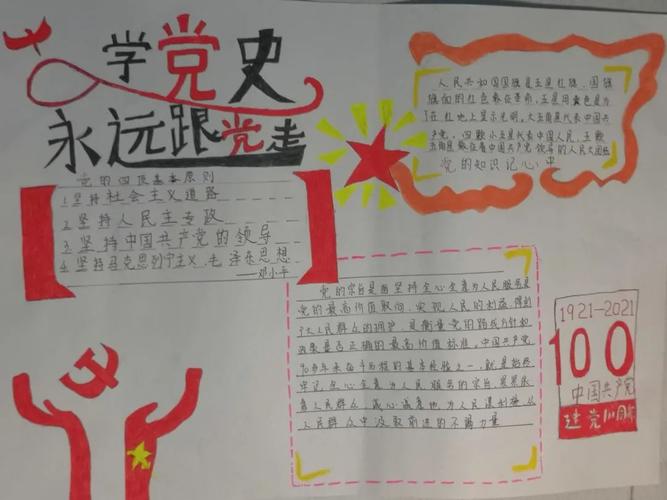 学党史
永远跟党走
党的四项基本原则
1.坚持社会主义道路
2.坚持人民主专政
3.坚持中国共产党的领导
4.坚持马克思列宁主义、毛泽东思想
——邓小平
人民共和国国旗是五星红旗，国旗
旗面的红色象征革命，五星用黄色是为
了在红地上显示光明，大五角星代表中国共
产党，四颗小五星代表中国人民，五颗
五角星象征着中国共产党领导的人民大团结
党的知识记心中
党的宗旨是由坚持全心全意为人民服务是
党的最高价值取向，实现人民的利益，得到
广大人民群众的拥护，是衡量党的路线方针和
政策是否正确的最高价值标准，中国共产党
90多年来奋斗历程的基本经验之一，就是始终
牢记全心全意为人民服务的宗旨，紧紧依
靠人民群众，诚心诚意地为人民谋利益，从
人民群众中汲取前进的不竭力量
1921-2021
100
中国共产党
建党100周年